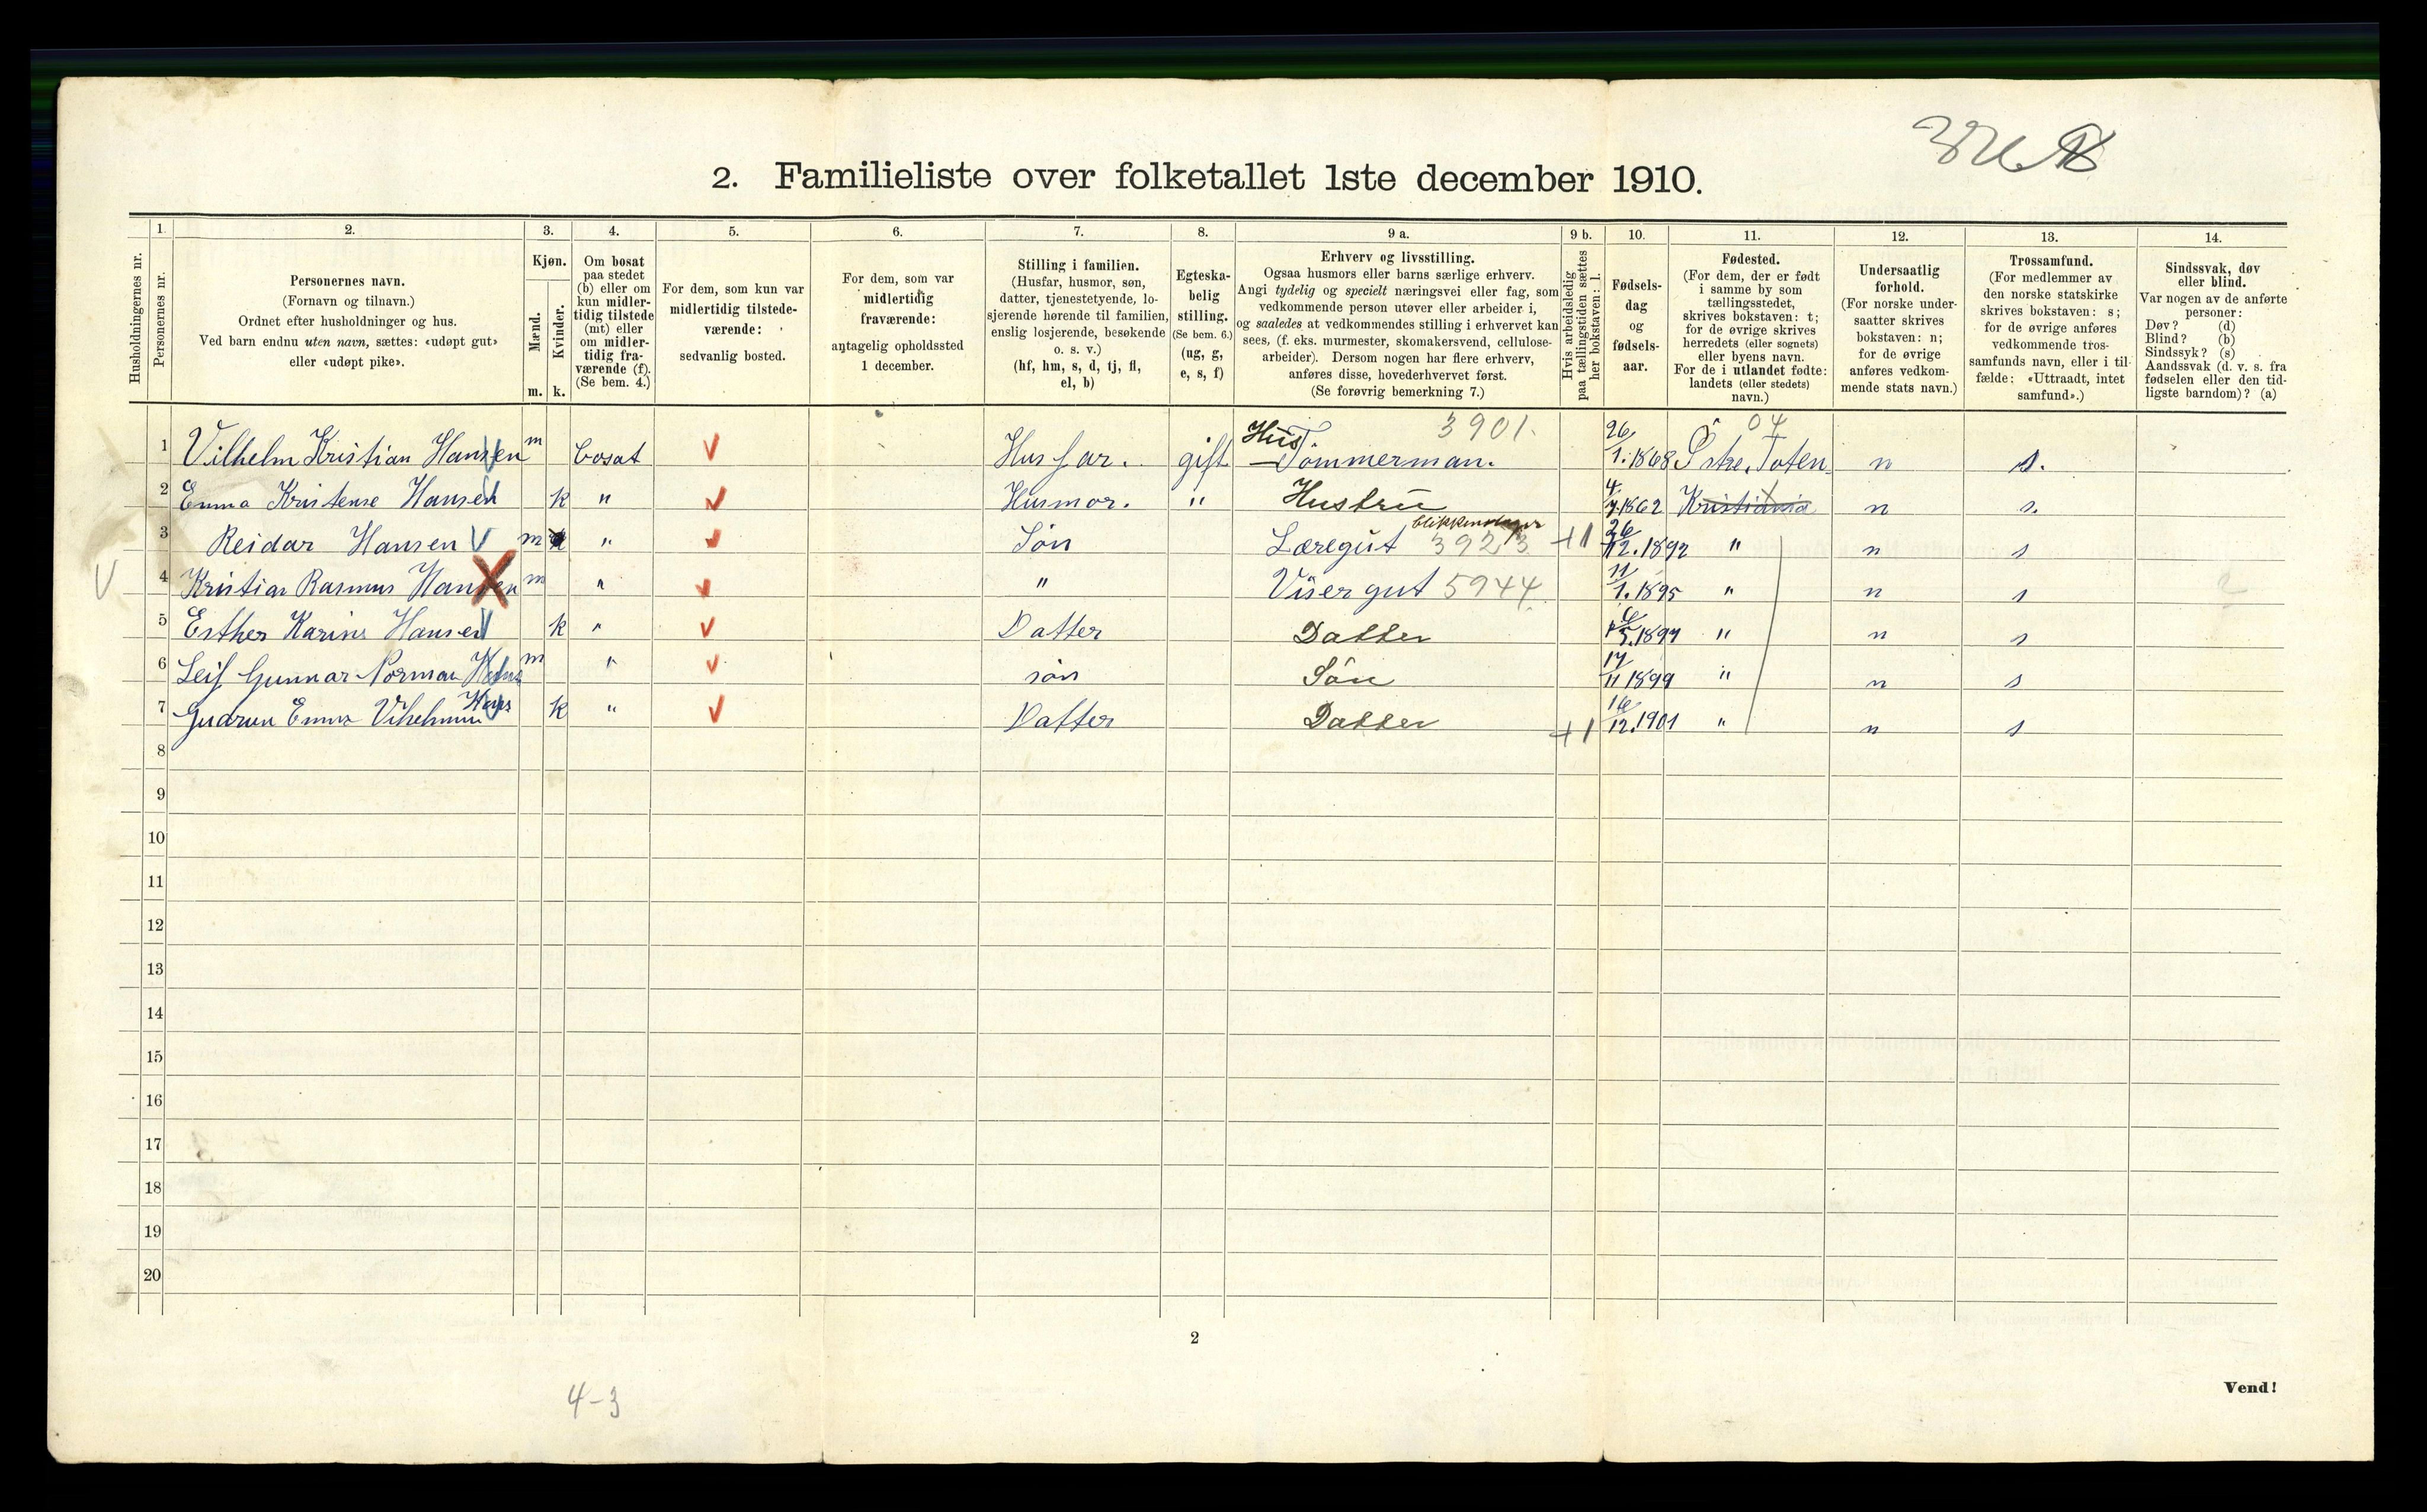 2. Familieliste over folketallet 1ste december 1910.
1. 2. 3. 4. 5. 6. 7. 8. 9 a. 9 b. 10. 11. 12. 13. 14.
Husholdningernes nr.
Personernes nr.
Personernes navn.
(Fornavn og tilnavn.)
Ordnet efter husholdninger og hus.
Ved barn endnu uten navn, sættes: «udøpt gut»
eller «udøpt pike».
Kjøn.
Mænd.
Kvinder.
m. k.
Om bosat
paa stedet
(b) eller om
kun midler-
tidig tilstede
(mt) eller
om midler-
tidig fra-
værende (f).
(Se bem. 4.)
For dem, som kun var
midlertidig tilstede-
værende:
sedvanlig bosted.
For dem, som var
midlertidig
fraværende:
antagelig opholdssted
1 december.
Stilling i familien.
(Husfar, husmor, søn,
datter, tjenestetyende, lo-
sjerende hørende til familien,
enslig losjerende, besøkende
o. s. v.)
(hf, hm, s, d, tj, fl,
el, b)
Egteska-
belig
stilling.
(Se bem. 6.)
(ug, g,
e, s, f)
Erhverv og livsstilling.
Ogsaa husmors eller barns særlige erhverv.
Angi tydelig og specielt næringsvei eller fag, som
vedkommende person utøver eller arbeider i,
og saaledes at vedkommendes stilling i erhvervet kan
sees, (f. eks. murmester, skomakersvend, cellulose-
arbeider). Dersom nogen har flere erhverv,
anføres disse, hovederhvervet først.
(Se forøvrig bemerkning 7.)
Hvis arbeidsledig
paa tællingstiden sættes
her bokstaven: l.
Fødsels-
dag
og
fødsels-
aar.
Fødested.
(For dem, der er født
i samme by som
tællingsstedet,
skrives bokstaven: t;
for de øvrige skrives
herredets (eller sognets)
eller byens navn.
For de i utlandet fødte:
landets (eller stedets)
navn.)
Undersaatlig
forhold.
(For norske under-
saatter skrives
bokstaven: n;
for de øvrige
anføres vedkom-
mende stats navn.)
Trossamfund.
(For medlemmer av
den norske statskirke
skrives bokstaven: s;
for de øvrige anføres
vedkommende tros-
samfunds navn, eller i til-
fælde: «Uttraadt, intet
samfund».)
Sindssvak, døv
eller blind.
Var nogen av de anførte
personer:
Døv? (d)
Blind? (b)
Sindssyk? (s)
Aandssvak (d. v. s. fra
fødselen eller den tid-
ligste barndom)? (a)
3901. 04
1 Vilhelm Kristian Hansen m bosat Husfar. gift Hus Tömmerman. 26/1. 1868 Östre Toten n s.
2 Emma Kristense Hansen k " Husmor. " Hustru 4/7. 1862 Kristiania n s.
3 Reidar Hansen m " Søn Læregut 3923 +1 26/12. 1892 " n s
4 Kristian Rasmus Hansen m " " Visergut 5944 11/1. 1895 " n s
5 Esther Karine Hansen k " Datter Datter 5. 1897 " n s
6 Leif Gunnar Norman m " søn Sön 17/11 1899 " n s
7 Gudrun Emma k " Datter Datter +1 16/12. 1901 " n s
8
9
10
11
12
13
14
15
16
17
18
19
20
2
Vend!
4-3